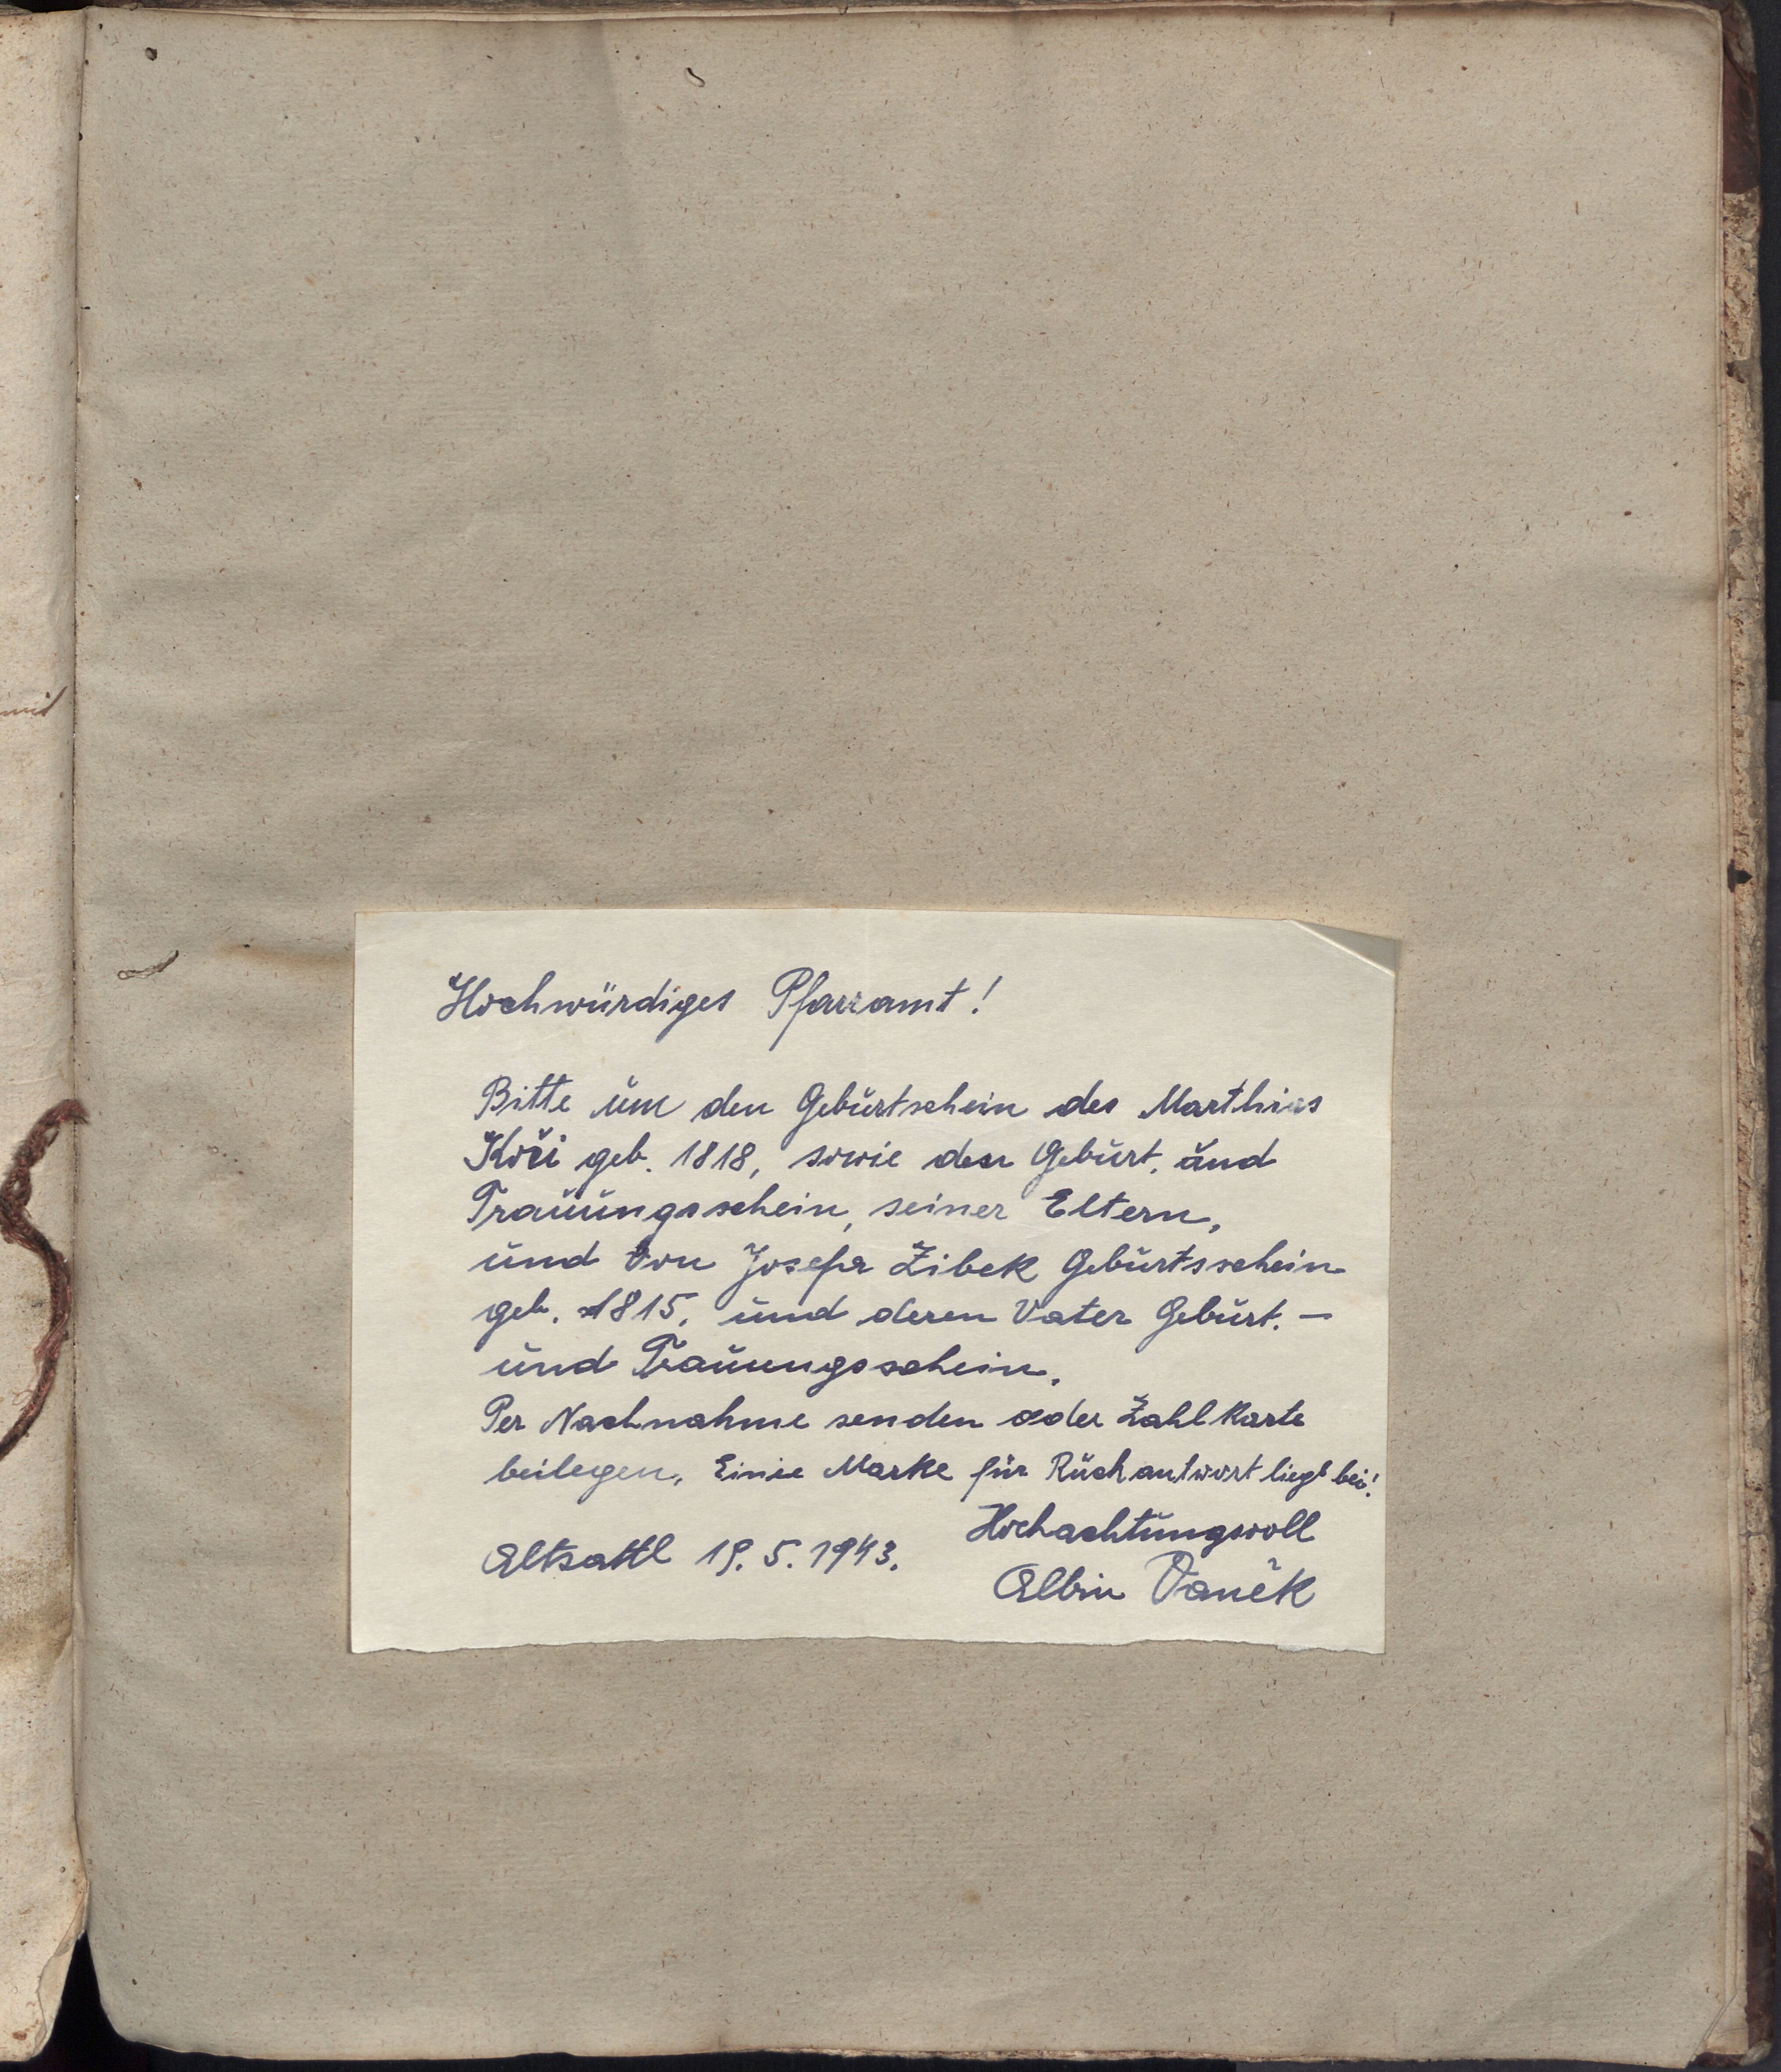 mit
Hochwürdiges Pfarramt!
Bitte um den Geburtschein des Marthias
Koči geb. 1818, sowie den Geburt. und
Trauungsschein, seiner Eltern,
und von Josefa Zibek Geburtsschein
geb. 1815. und deren Vater Geburt. —
und Trauungsschein.
Per Nachnahme senden oder Zahlkarte
beilegen. Einie Marke für Rückantwort liegt bei!
Hochachtungsvoll
Altsattl 19. 5. 1943.
Albin Vaněk